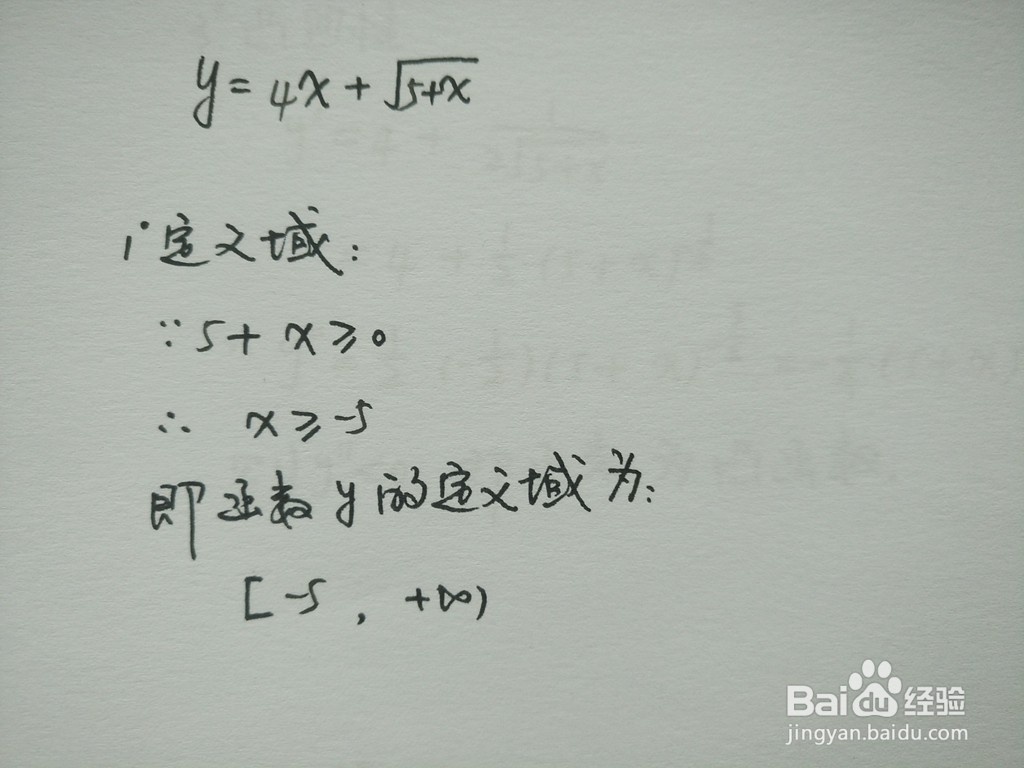 y=4x+√5+x
1°定义域:
∵5+x≥0
∴ x≥-5
即函数y的定义域为:
[-5, +∞)
Bai du 经验
jingyan.baidu.com